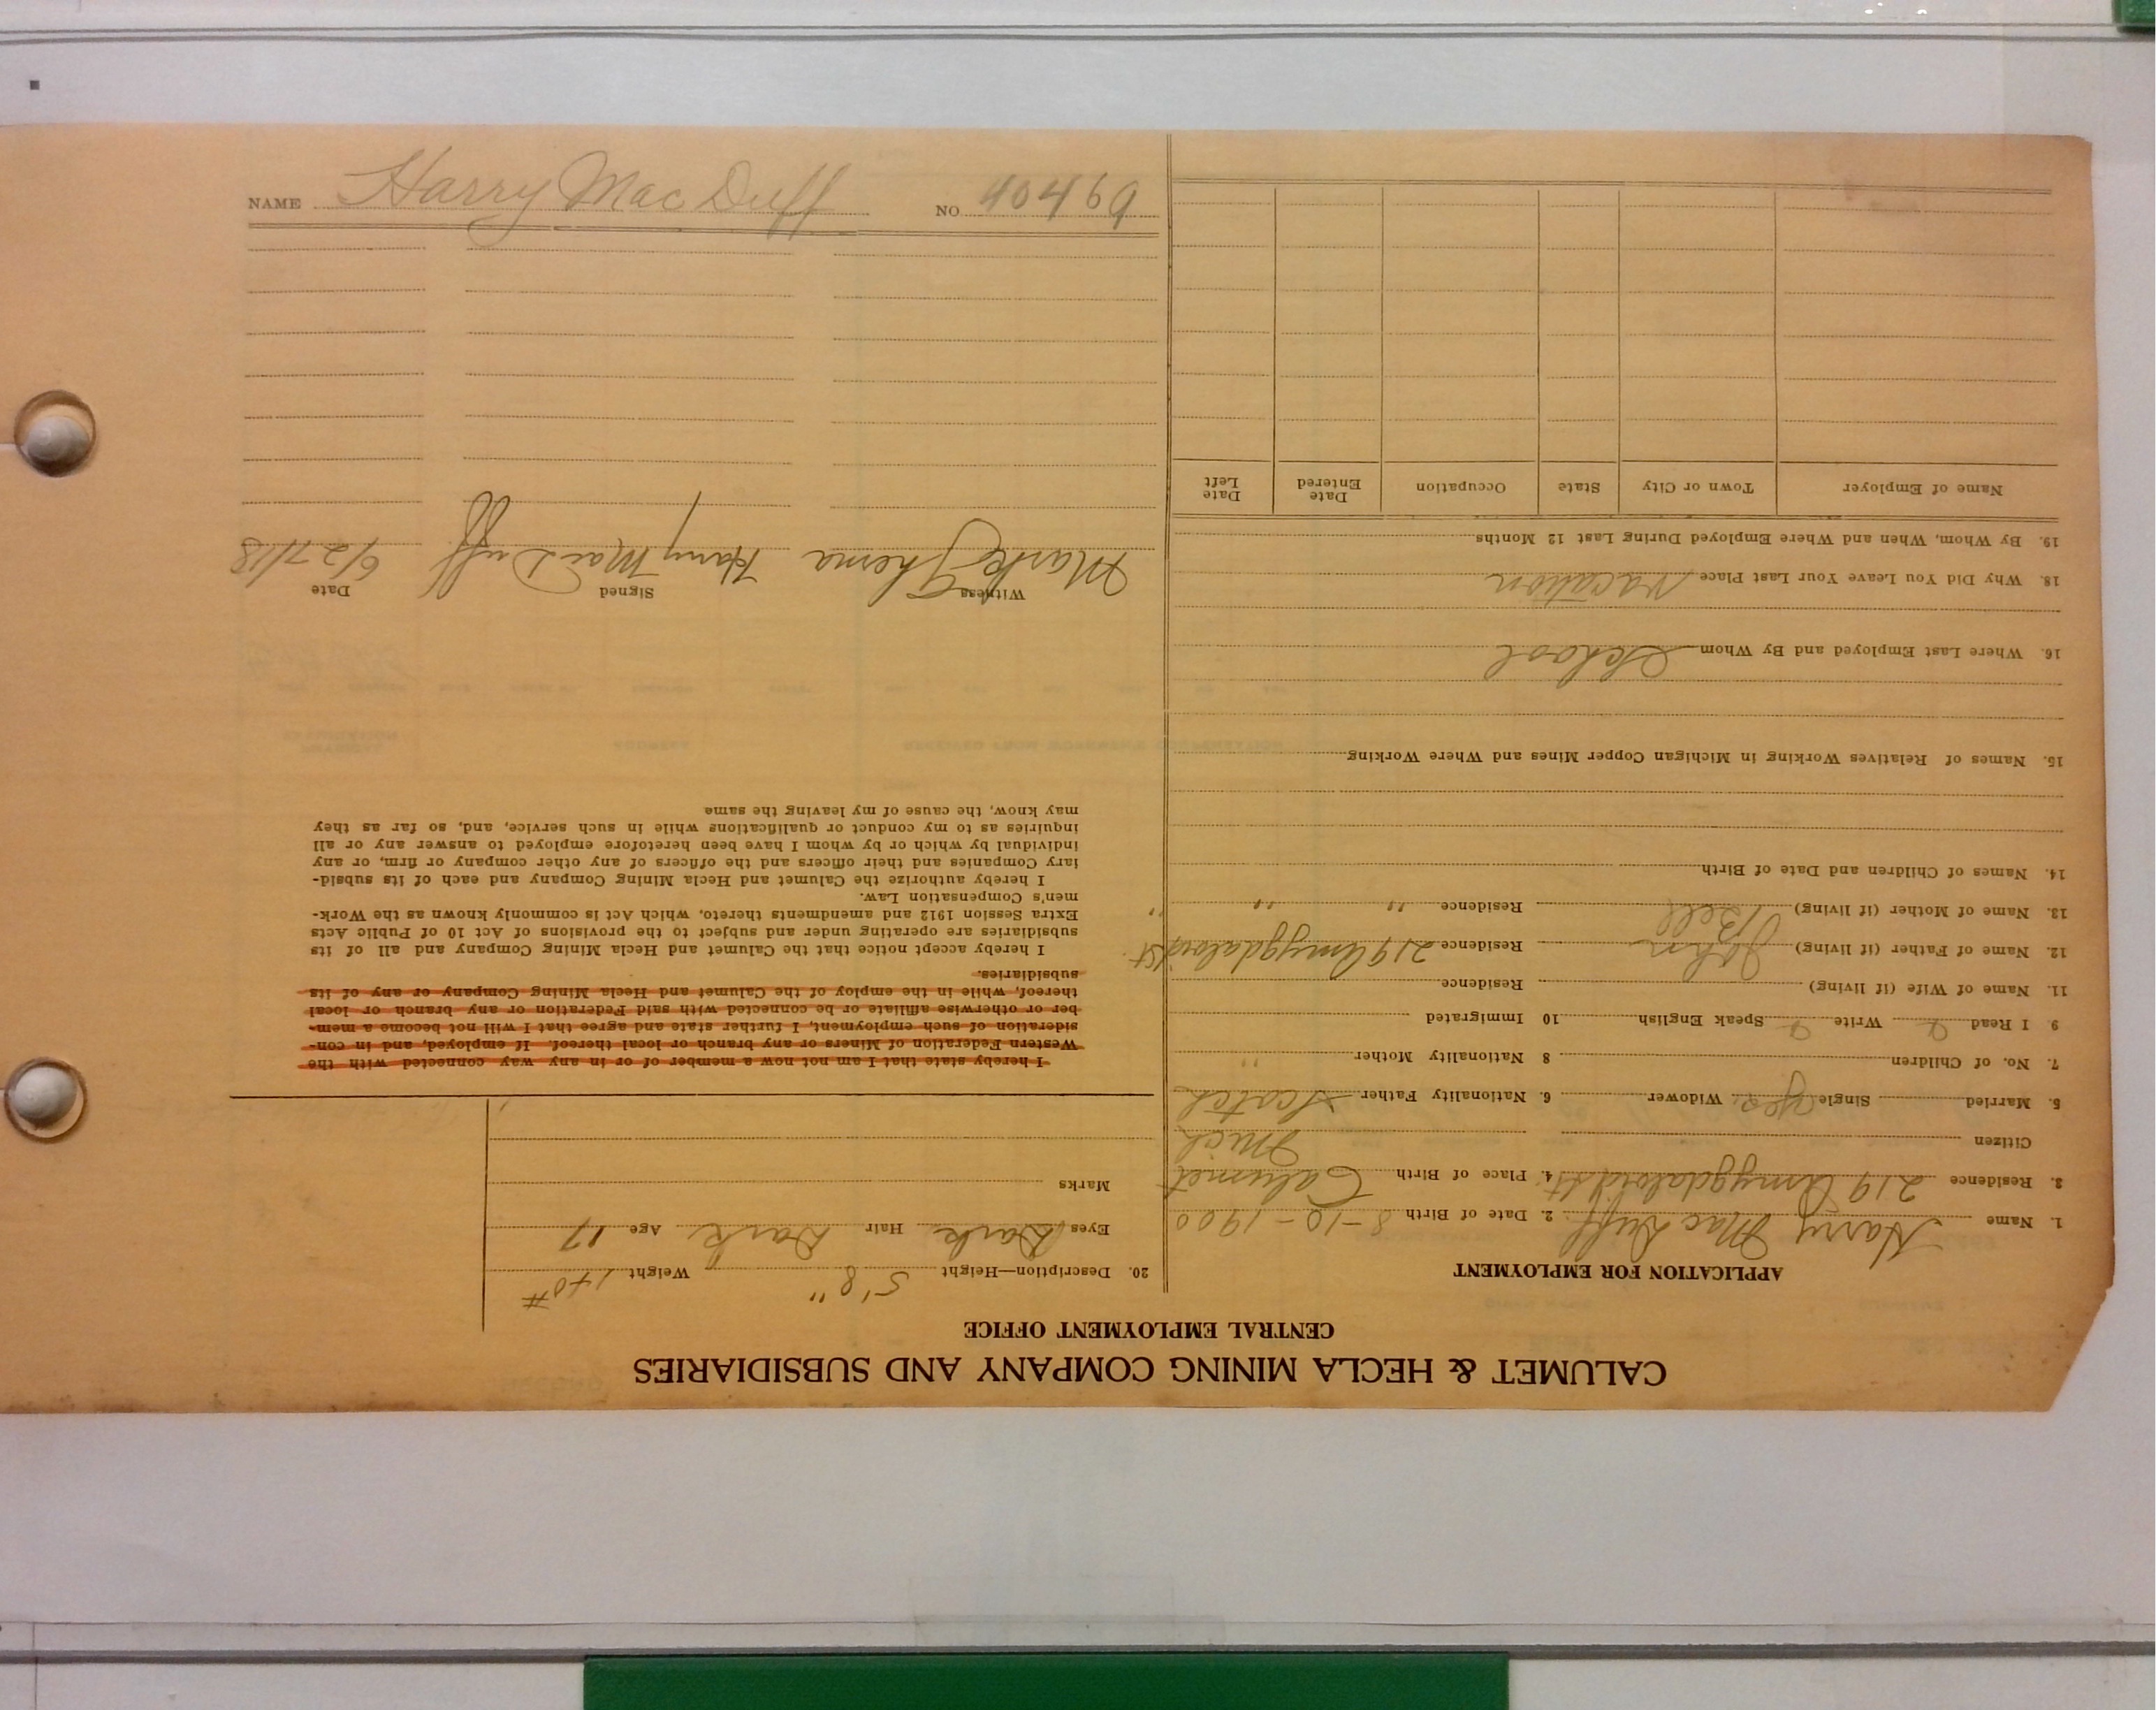 CALUMET & HECLA MINING COMPANY AND SUBSIDIARIES
CENTRAL EMPLOYMENT OFFICE
APPLICATION FOR EMPLOYMENT
1. Name Harry Mac Duff 2. Date of Birth 8-10-1900
3. Residence 219 Amygdaloid St. 4. Place of Birth Calumet
Mich
Citizen
5. Married Single yes. Widower 6. Nationality Father Scotch
7. No. of Children 8 Nationality Mother " "
9 I Read Write Speak English 10 Immigrated
11. Name of Wife (if living) Residence
12. Name of Father (if living) John Residence 219 Amygdaloid St.
13. Name of Mother (if living) Bell Residence " " "
14. Names of Children and Date of Birth
15. Names of Relatives Working in Michigan Copper Mines and Where Working
16. Where Last Employed and By Whom School
18. Why Did You Leave Your Last Place Vacation
19. By Whom, When and Where Employed During Last 12 Months
Name of Employer Town or City State Occupation Date Entered Date Left
20. Description—Height 5'8" Weight 140#
Eyes Dark Hair Dark Age 17
Marks
I hereby state that I am not now a member of or in any way connected with the
Western Federation of Miners or any branch or local thereof. If employed, and in con-
sideration of such employment, I further state and agree that I will not become a mem-
ber or otherwise affiliate or be connected with said Federation or any branch or local
thereof, while in the employ of the Calumet and Hecla Mining Company or any of its
subsidiaries.
I hereby accept notice that the Calumet and Hecla Mining Company and all of its
subsidiaries are operating under and subject to the provisions of Act 10 of Public Acts
Extra Session 1912 and amendments thereto, which Act is commonly known as the Work-
men's Compensation Law.
I hereby authorize the Calumet and Hecla Mining Company and each of its subsid-
iary Companies and their officers and the officers of any other company or firm, or any
individual by which or by whom I have been heretofore employed to answer any or all
inquiries as to my conduct or qualifications while in such service, and, so far as they
may know, the cause of my leaving the same
Witness Signed Date
Harry MacDuff 6/27/18
NAME Harry Mac Duff NO 40469